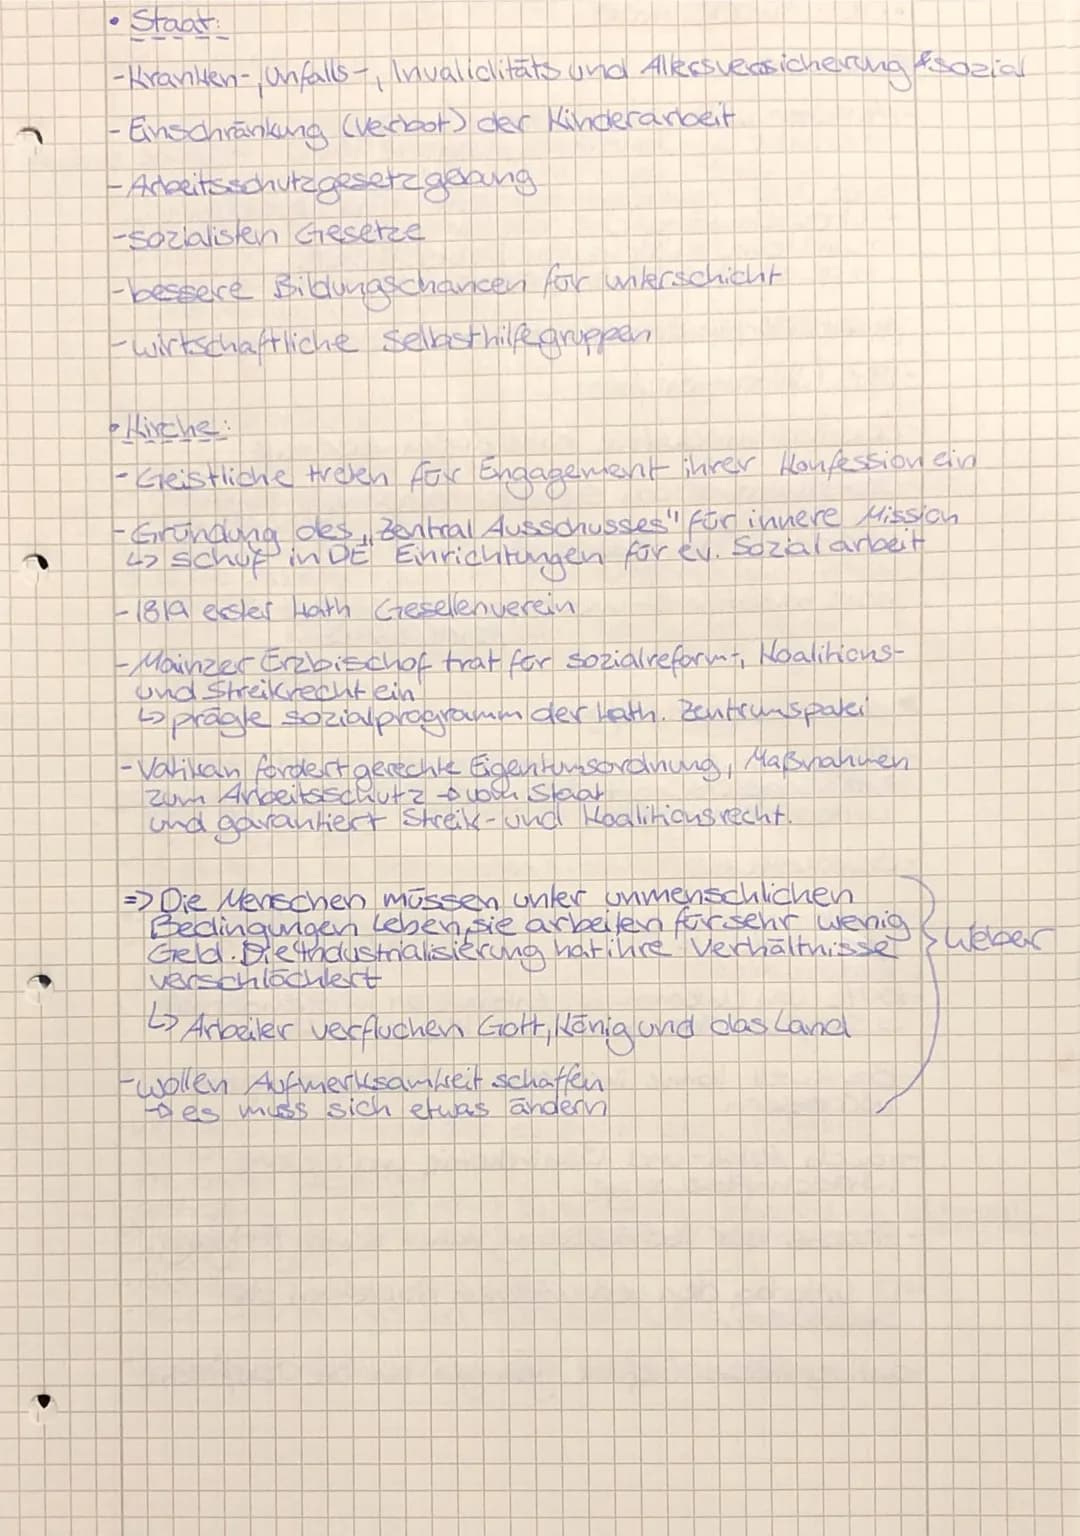 • Staat:
- Kranken-, Unfalls-, Invaliditäts und Altersversicherung sozial
- Einschränkung (Verbot) der Kinderarbeit
- Arbeitsschutzgesetzgebung
- sozialisten Gesetze
- bessere Bildungschancen für unterschicht
- wirtschaftliche Selbsthilfegruppen
• Kirche:
- Geistliche treten für Engagement ihrer Konfession ein
- Gründung des „Zentral Ausschusses" für innere Mission
↳ schuf in DE Einrichtungen für ev. Sozialarbeit
- 1819 erster kath Gesellenverein
- Mainzer Erzbischof trat für sozialreform-, Koalitions-
und Streikrecht ein
↳ prägte sozialprogramm der kath. Zentrumspatei
- Vatikan fordert gerechte Eigentumsordnung, Maßnahmen
zum Arbeitsschutz → vom Staat
und garantiert Streik- und Koalitionsrecht.
=> Die Menschen müssen unter unmenschlichen
Bedingungen Leben, sie arbeiten für sehr wenig
Geld. Die Industrialisierung hat ihre Verhältnisse } Weber
verschlächert
↳ Arbeiter verfluchen Gott, König und das Land
- wollen Aufmerksamkeit schaffen
→ es muss sich etwas ändern